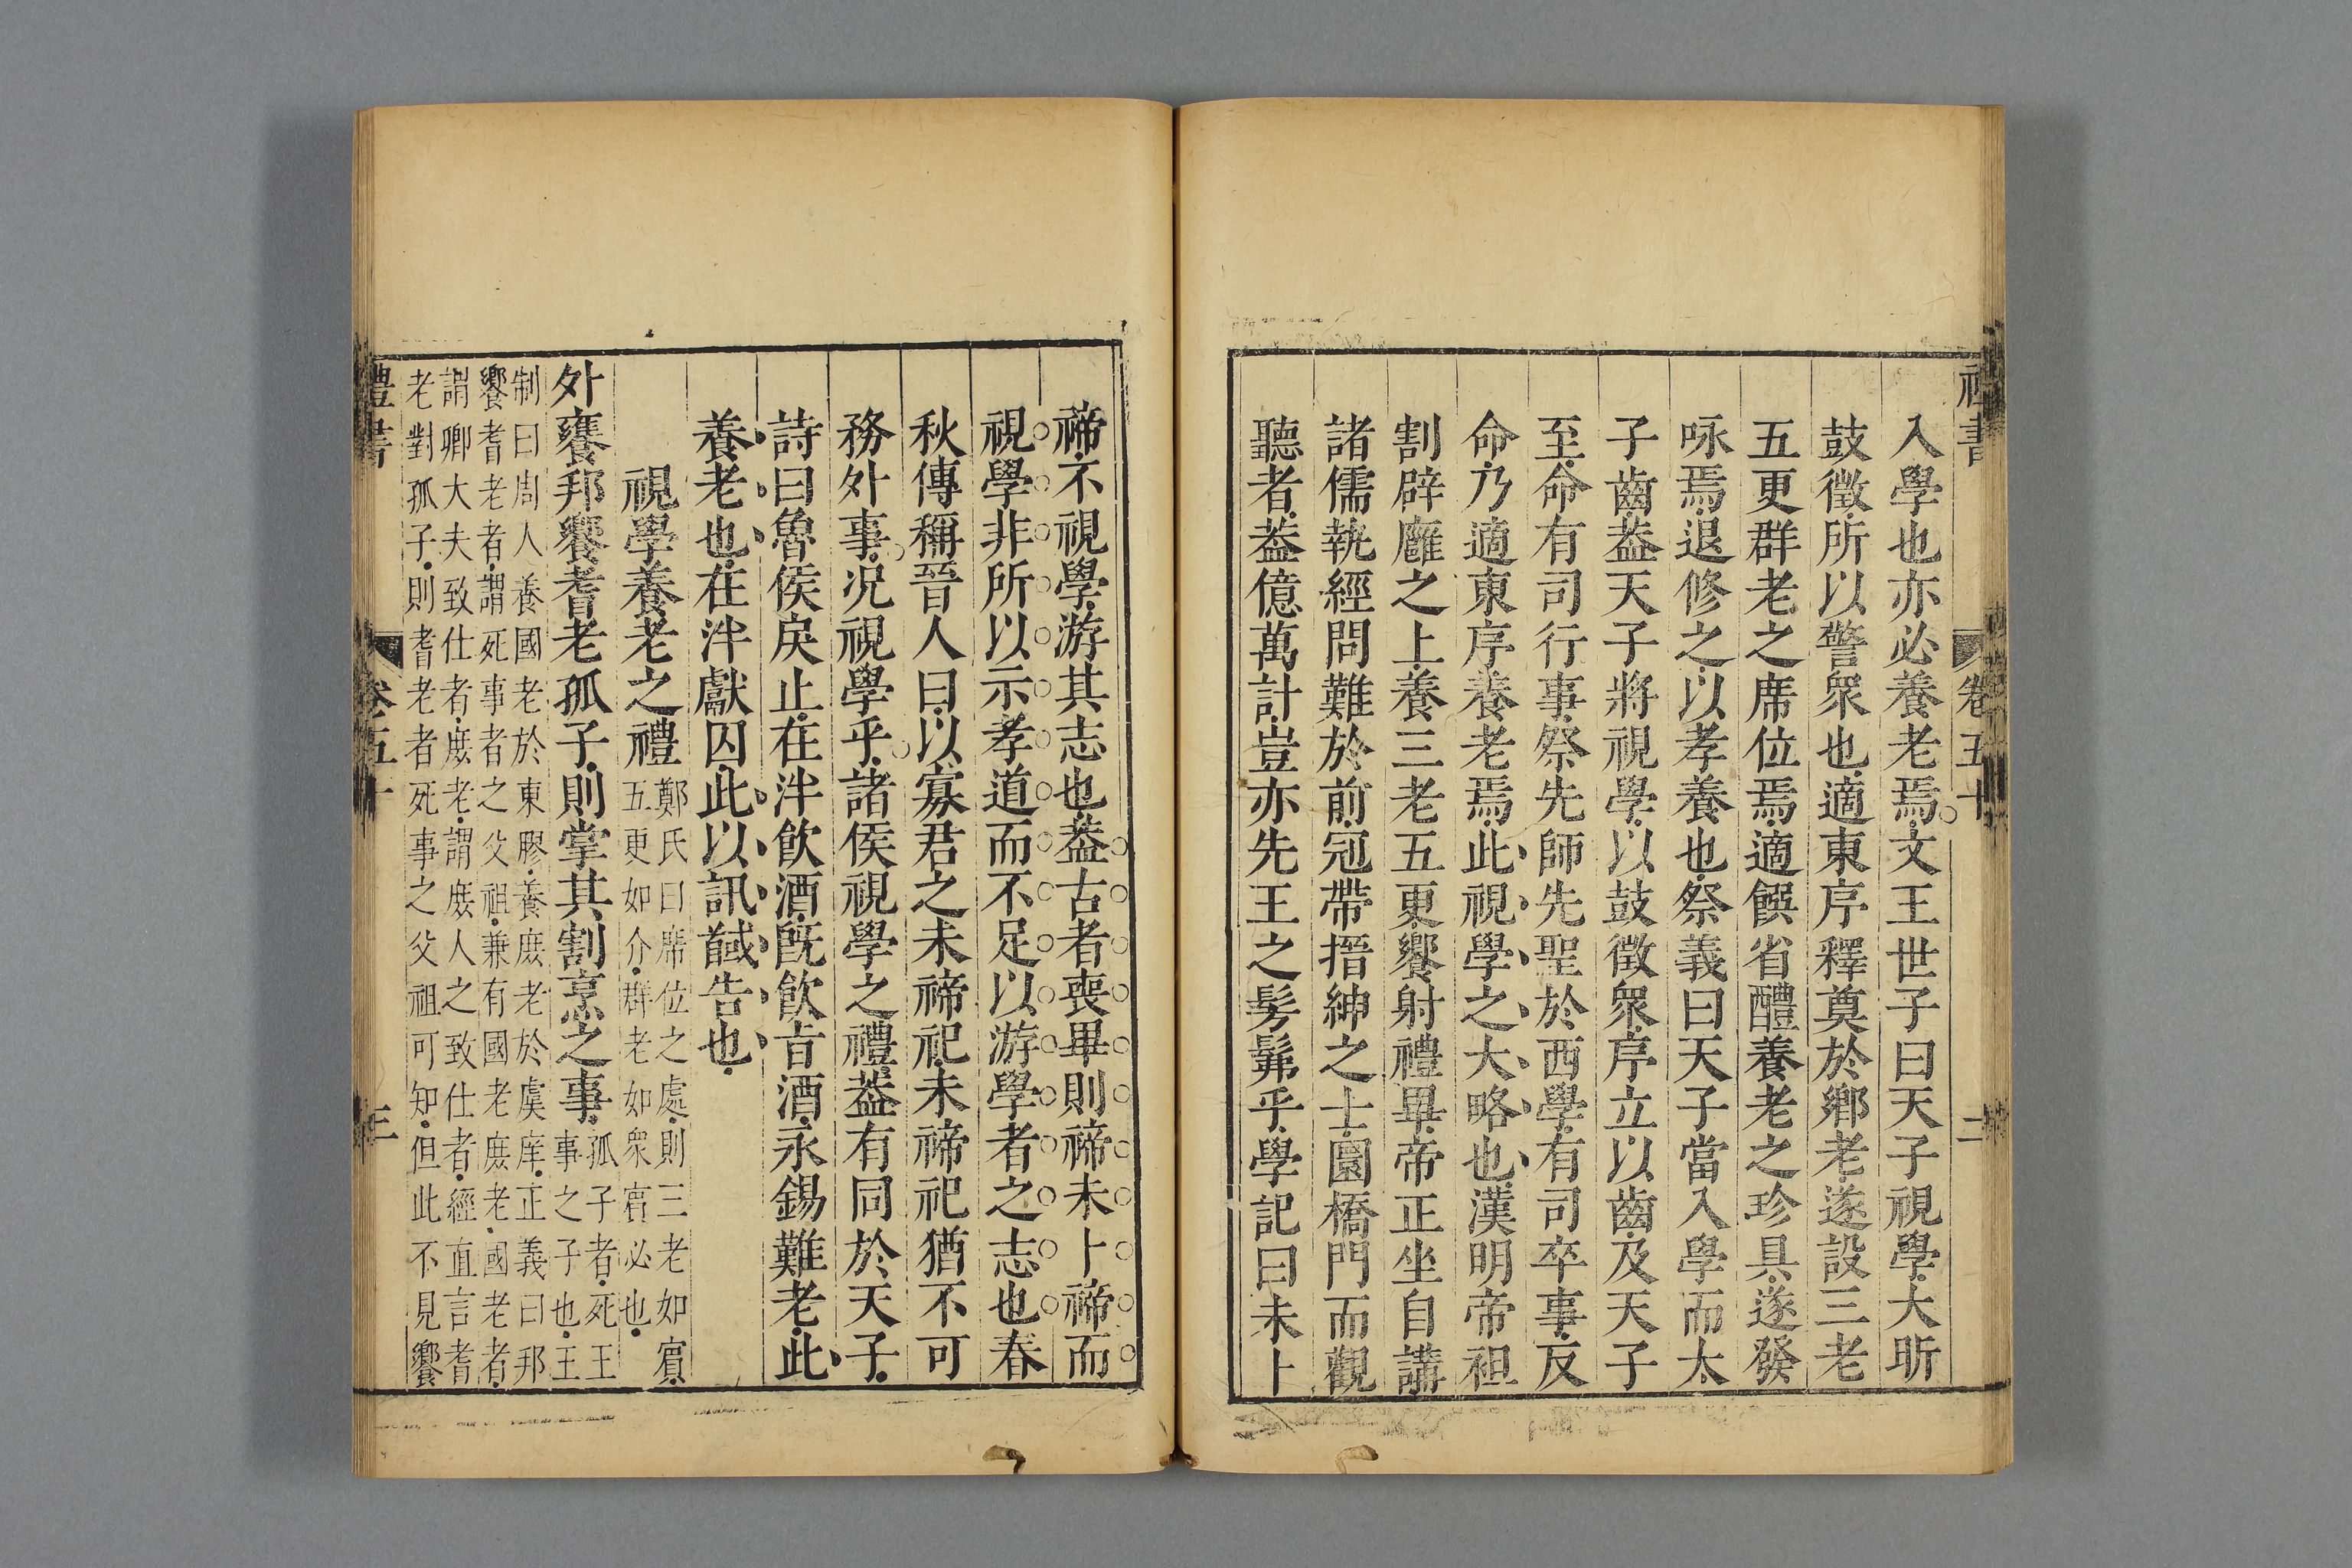 禮書 卷五十 二
入學也亦必養老焉文王世子曰天子視學大昕
鼓徵所以警衆也適東序釋奠於鄉老遂設三老
五更群老之席位焉適饌省醴養老之珍具遂發
咏焉退修之以孝養也祭義曰天子當入學而太
子齒葢天子將視學以鼓徵衆序立以齒及天子
至命有司行事祭先師先聖於西學有司卒事反
命乃適東序養老焉此視學之大略也漢明帝袒
割辟廱之上養三老五更饗射禮畢帝正坐自講
諸儒執經問難於前冠帶搢紳之士圜橋門而觀
聽者葢億萬計豈亦先王之髣髴乎學記曰未卜
禘不視學游其志也葢古者喪畢則禘未卜禘而
視學非所以示孝道而不足以游學者之志也春
秋傳稱晉人曰以寡君之未禘祀未禘祀猶不可
務外事况視學乎諸侯視學之禮葢有同於天子
詩曰魯侯戾止在泮飲酒旣飲旨酒永錫難老此
養老也在泮獻囚此以訊馘告也
視學養老之禮鄭氏曰席位之處則三老如賓
五更如介群老如衆賓必也
外饔邦饗耆老孤子則掌其割亨之事孤子者死王
事之子也王
制曰周人養國老於東膠養庶老於虞庠正義曰邦
饗耆老者謂死事者之父祖兼有國老庶老國老者
謂卿大夫致仕者庶老謂庶人之致仕者經直言耆
老對孤子則耆老者死事之父祖可知但此不見饗
禮書 卷五十 三